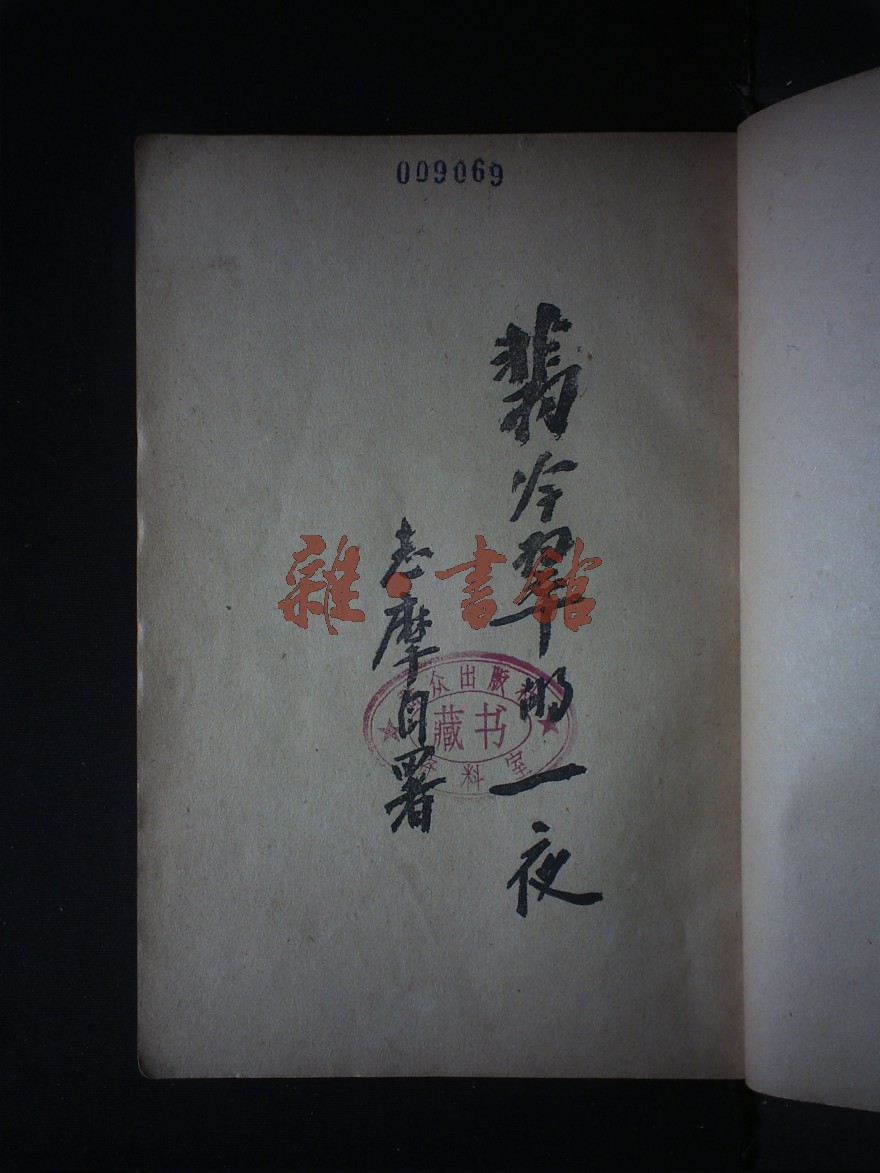 009069
翡冷翠的一夜
志摩自署
雜·書館
群众出版社
藏书
资料室